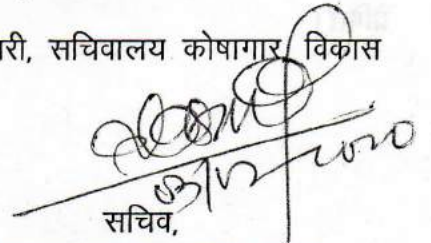 री, सचिवालय कोषागार, विकास
सचिव,